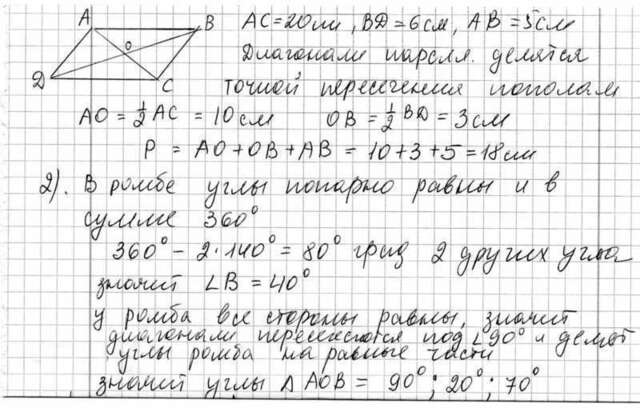 A B AC=20см, BD=6см, AB=5см
O Диагонали паралл. делятся
D C точкой пересечения пополам
AO = ½ AC = 10см OB = ½ BD = 3см
P = AO+OB+AB = 10+3+5=18см
2). В ромбе углы попарно равны и в
сумме 360°
360° - 2·140° = 80° град 2 других угла
значит ∠B = 40°
у ромба все стороны равны, значит
диагонали пересекаются под ∠90° и делят
углы ромба на равные части
значит углы Δ AOB = 90°; 20°; 70°